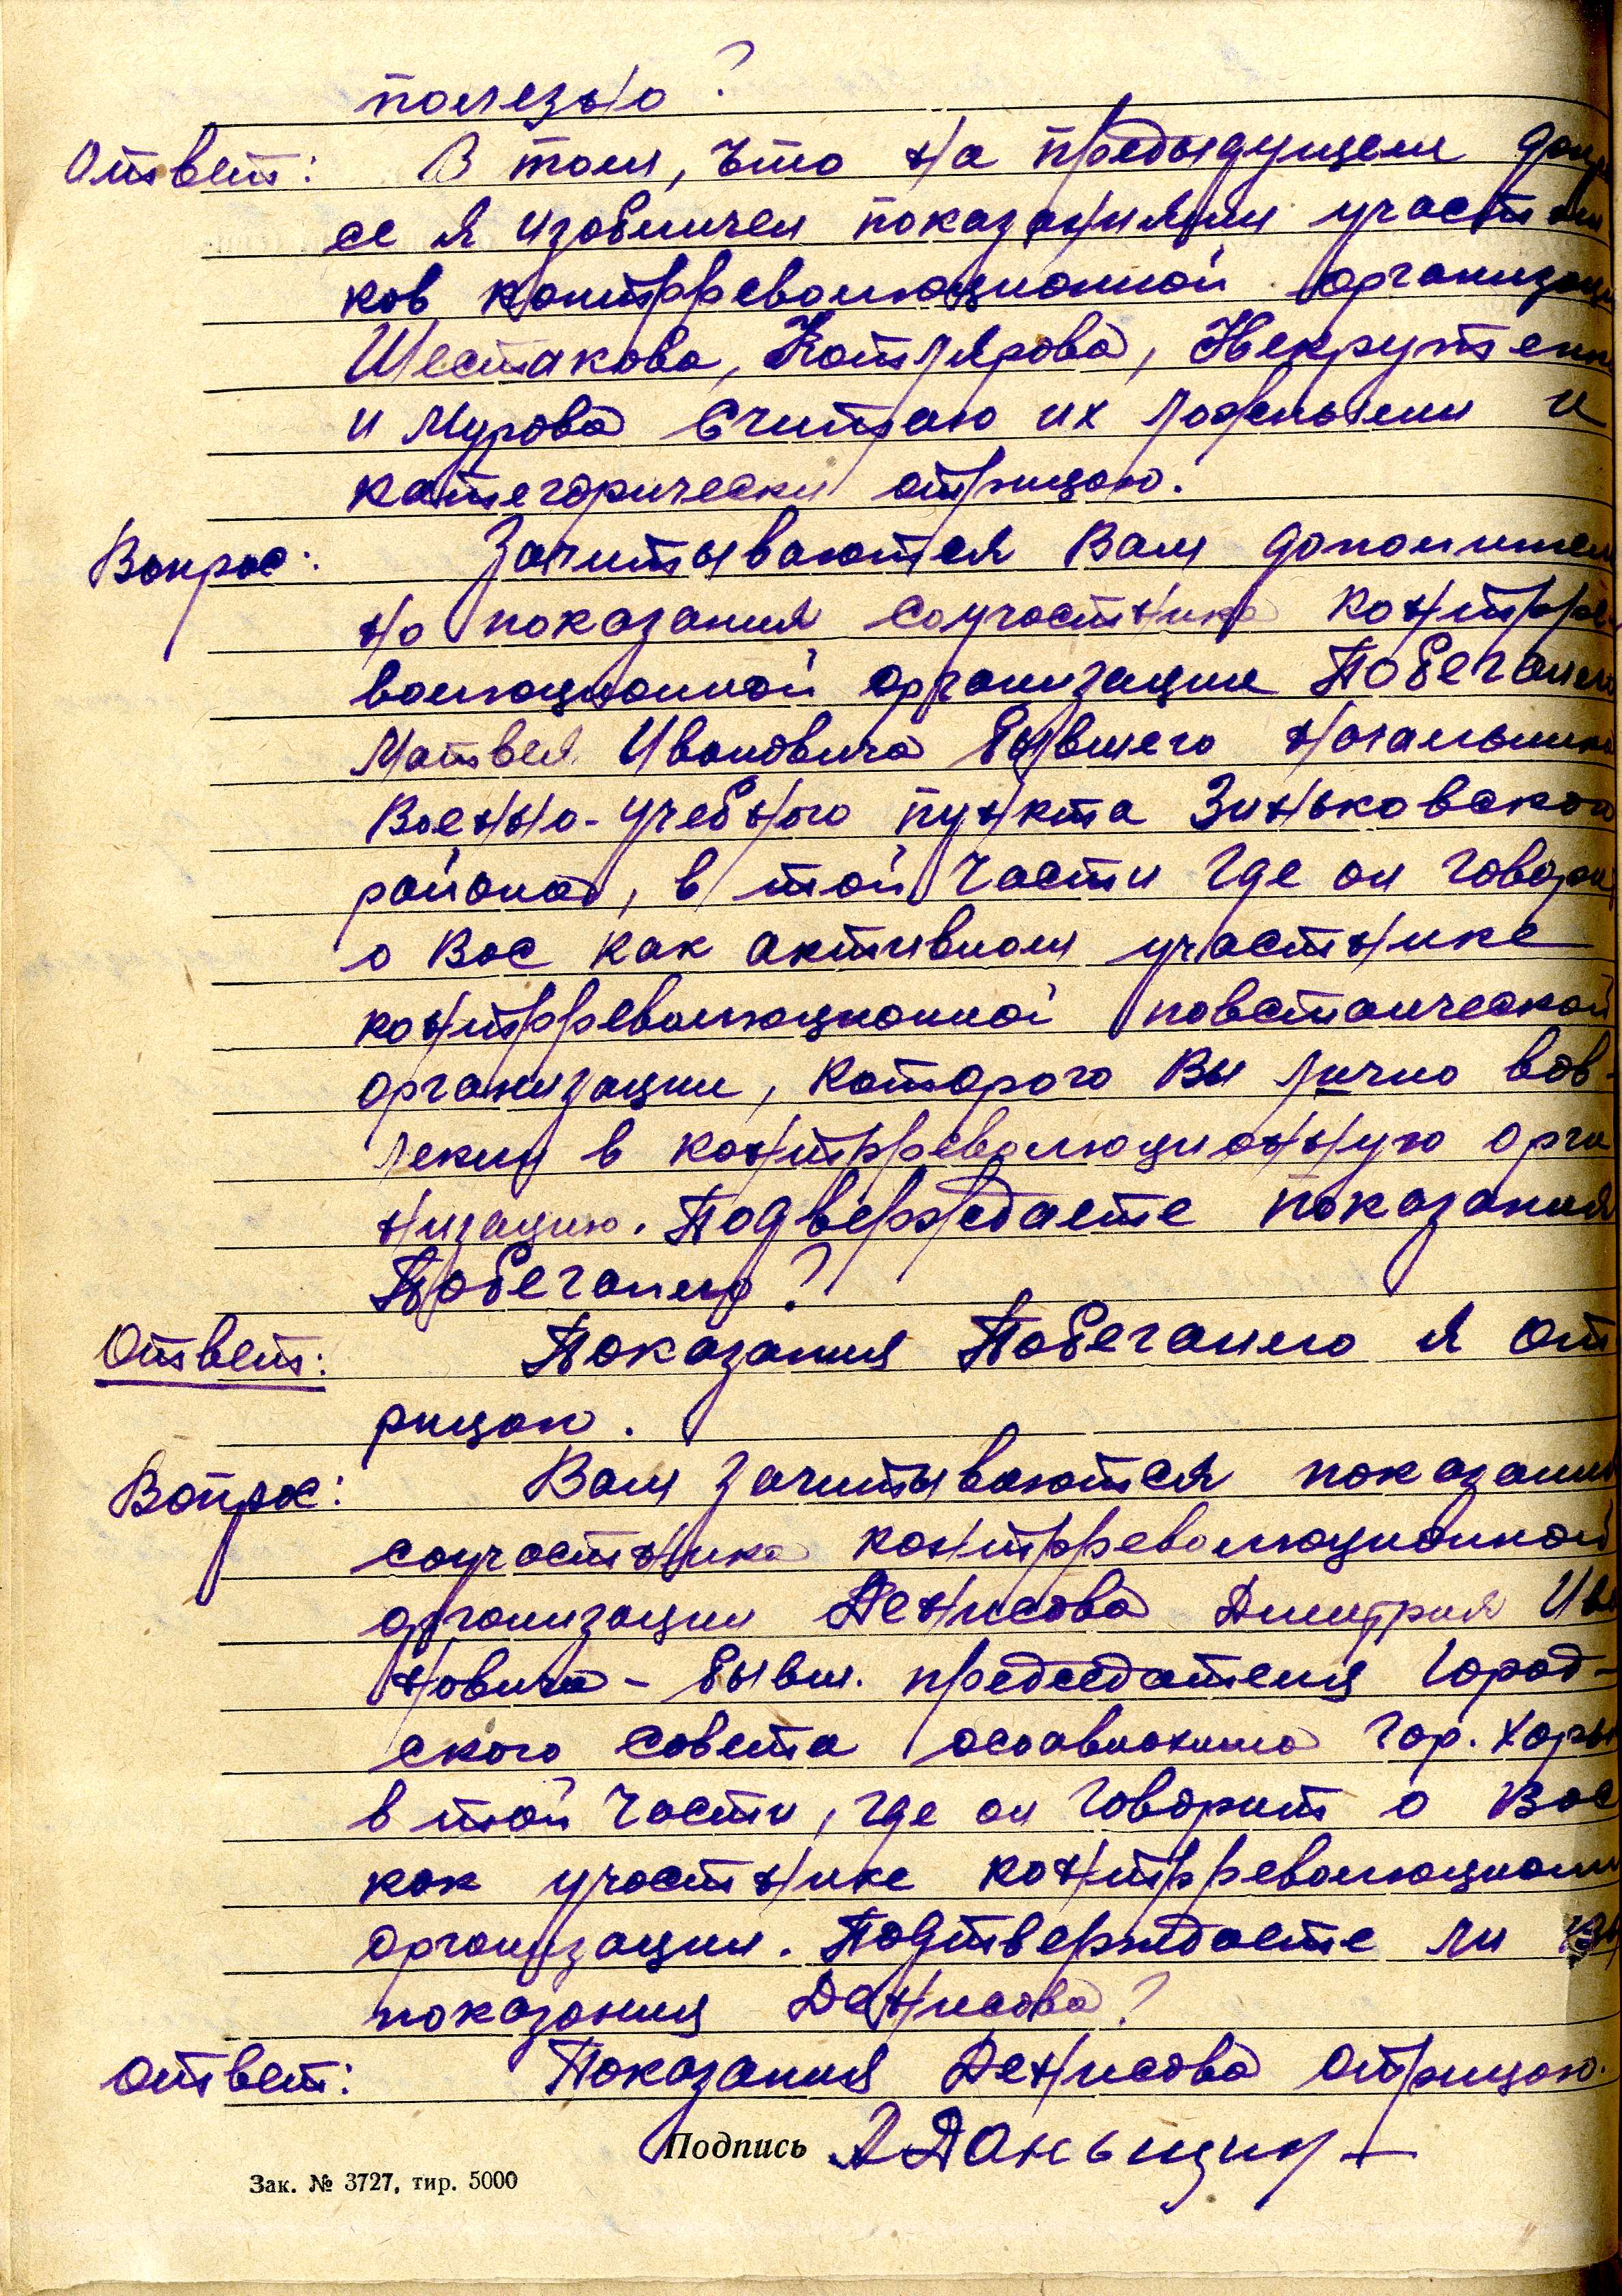 полезно?
Ответ: В том, что на предыдущем допро
се я изобличен показаниями участни
ков контрреволюционной организаци
Шестакова, Котлярова, Некрутенк
и Мурова считаю их ложными и
категорически отрицаю.
Вопрос: Зачитываются Вам дополнител
но показания соучастника контрре
волюционной организации Побегайло
Матвея Ивановича бывшего начальника
Военно-учебного пункта Зиньковского
района, в той части где он говори
о Вас как активном участнике
контрреволюционной повстанческой
организации, которого Вы лично вов-
лекли в контрреволюционную орга
низацию. Подверждаете показания
Побегайло?
Ответ: Показания Побегайло я от
рицаю.
Вопрос: Вам зачитываются показания
соучастника контрреволюционной
организации Денисова Дмитрия Ива
новича - бывш. председателя город-
ского совета осоавиахима гор. Харь
в той части, где он говорит о Вас
как участнике контрреволюционн
организации. Подтверждаете ли Вы
показания Денисова?
Ответ: Показания Денисова отрицаю.
Подпись А Даньщин
Зак. № 3727, тир. 5000